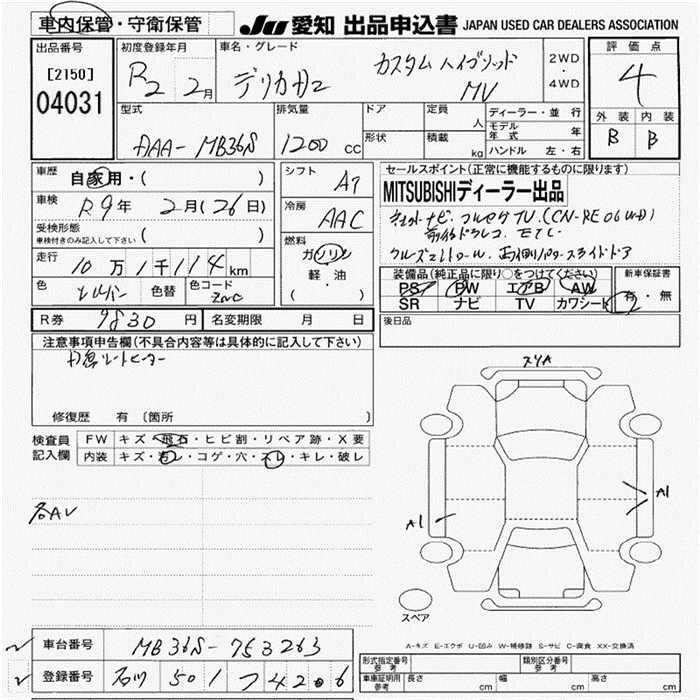 車内保管・守衛保管 JU 愛知 出品申込書 JAPAN USED CAR DEALERS ASSOCIATION
出品番号 初度登録年月 車名・グレード 評価点
[2150] R2 2月 デリカD2 カスタム ハイブリッド MV 2WD・4WD 4
04031
型式 排気量 ドア 定員 人 ディーラー・並行 外装 内装
AAA- MB36S 1200 CC 形状 積載 kg モデル年式 年 B B
ハンドル 左・右
車歴 自家用・( ) シフト AT セールスポイント(正常に機能するものに限ります)
車検 R9年 2月(26日) 冷房 AAC MITSUBISHIディーラー出品
受検形態 ( ) ナビ. フルセグTV.(CN-RE06WD)
車検付きのみ記入して下さい 燃料 前後ドラレコ. ETC.
走行 10万1千114km ガソリン クルーズコントロール. 両側パワースライドドア
軽・油
( ・ )
色 シルバー 色替 色コード ZNC 装備品(純正品に限り○をつけてください) 新車保証書
PS PW エアB AW 有・無
SR ナビ TV カワシート
R券 9830円 名変期限 月 日 後日品
注意事項申告欄(不具合内容等は具体的に記入して下さい)
シートヒーター
修復歴 有 〔箇所
スリA
検査員 FW キズ・飛石・ヒビ割・リペア跡・X要
記入欄 内装 キズ・汚レ・コゲ・穴・スレ・キレ・破レ
各AU
A1
A1
スペア
A-キズ E-エクボ U-凹み W-補修跡 S-サビ C-腐食 XX-交換済
車台番号 MB36S-753263
登録番号 石川 501 つ 4206
形式指定番号 参考 類別区分番号 参考
車庫証明用 参考 長さ cm 幅 cm 高さ cm